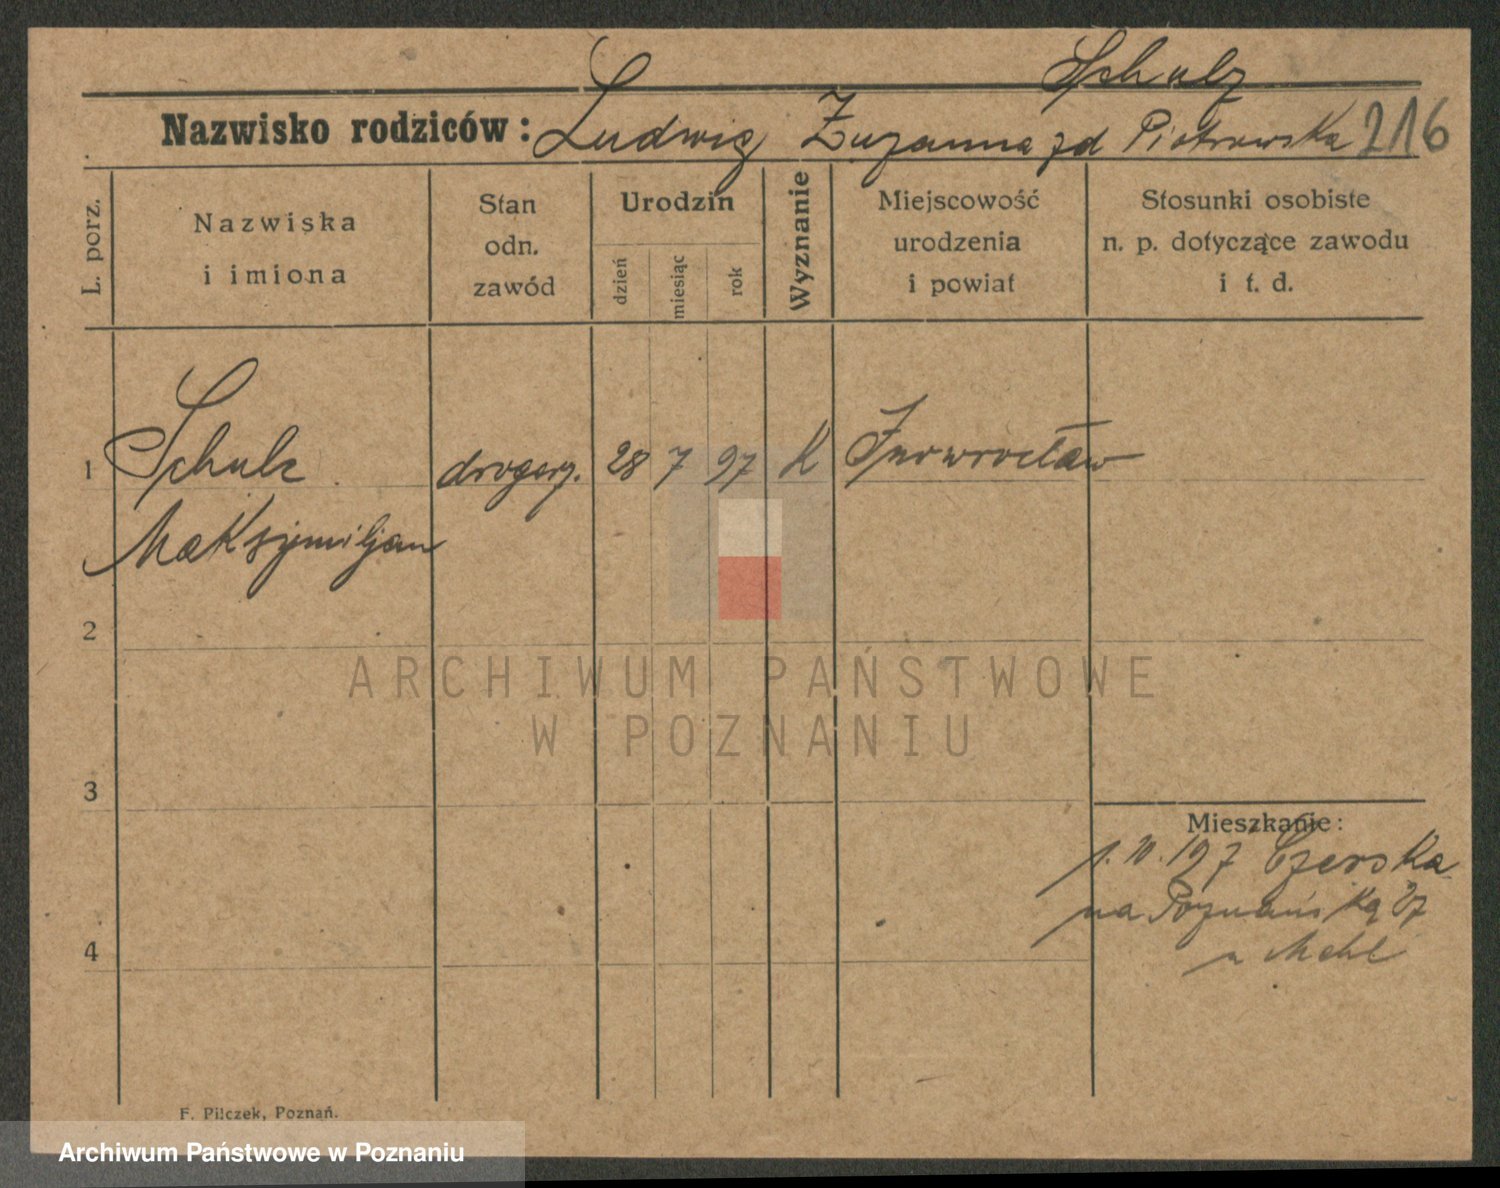 Schulz
Nazwisko rodziców: Ludwig Zuzanna zd Piotrowska 216
L. porz.
Nazwiska
i imiona
Stan
odn.
zawód
Urodzin
dzień
miesiąc
rok
Wyznanie
Miejscowość
urodzenia
i powiat
Stosunki osobiste
n. p. dotyczące zawodu
i t. d.
1 Schulz drogerz. 28 7 97 K Inowrocław
Maksymiljan
2
ARCHIWUM PAŃSTWOWE
W POZNANIU
3
Mieszkanie:
Czerska
na Poznańską
4
F. Pilczek, Poznań.
Archiwum Państwowe w Poznaniu